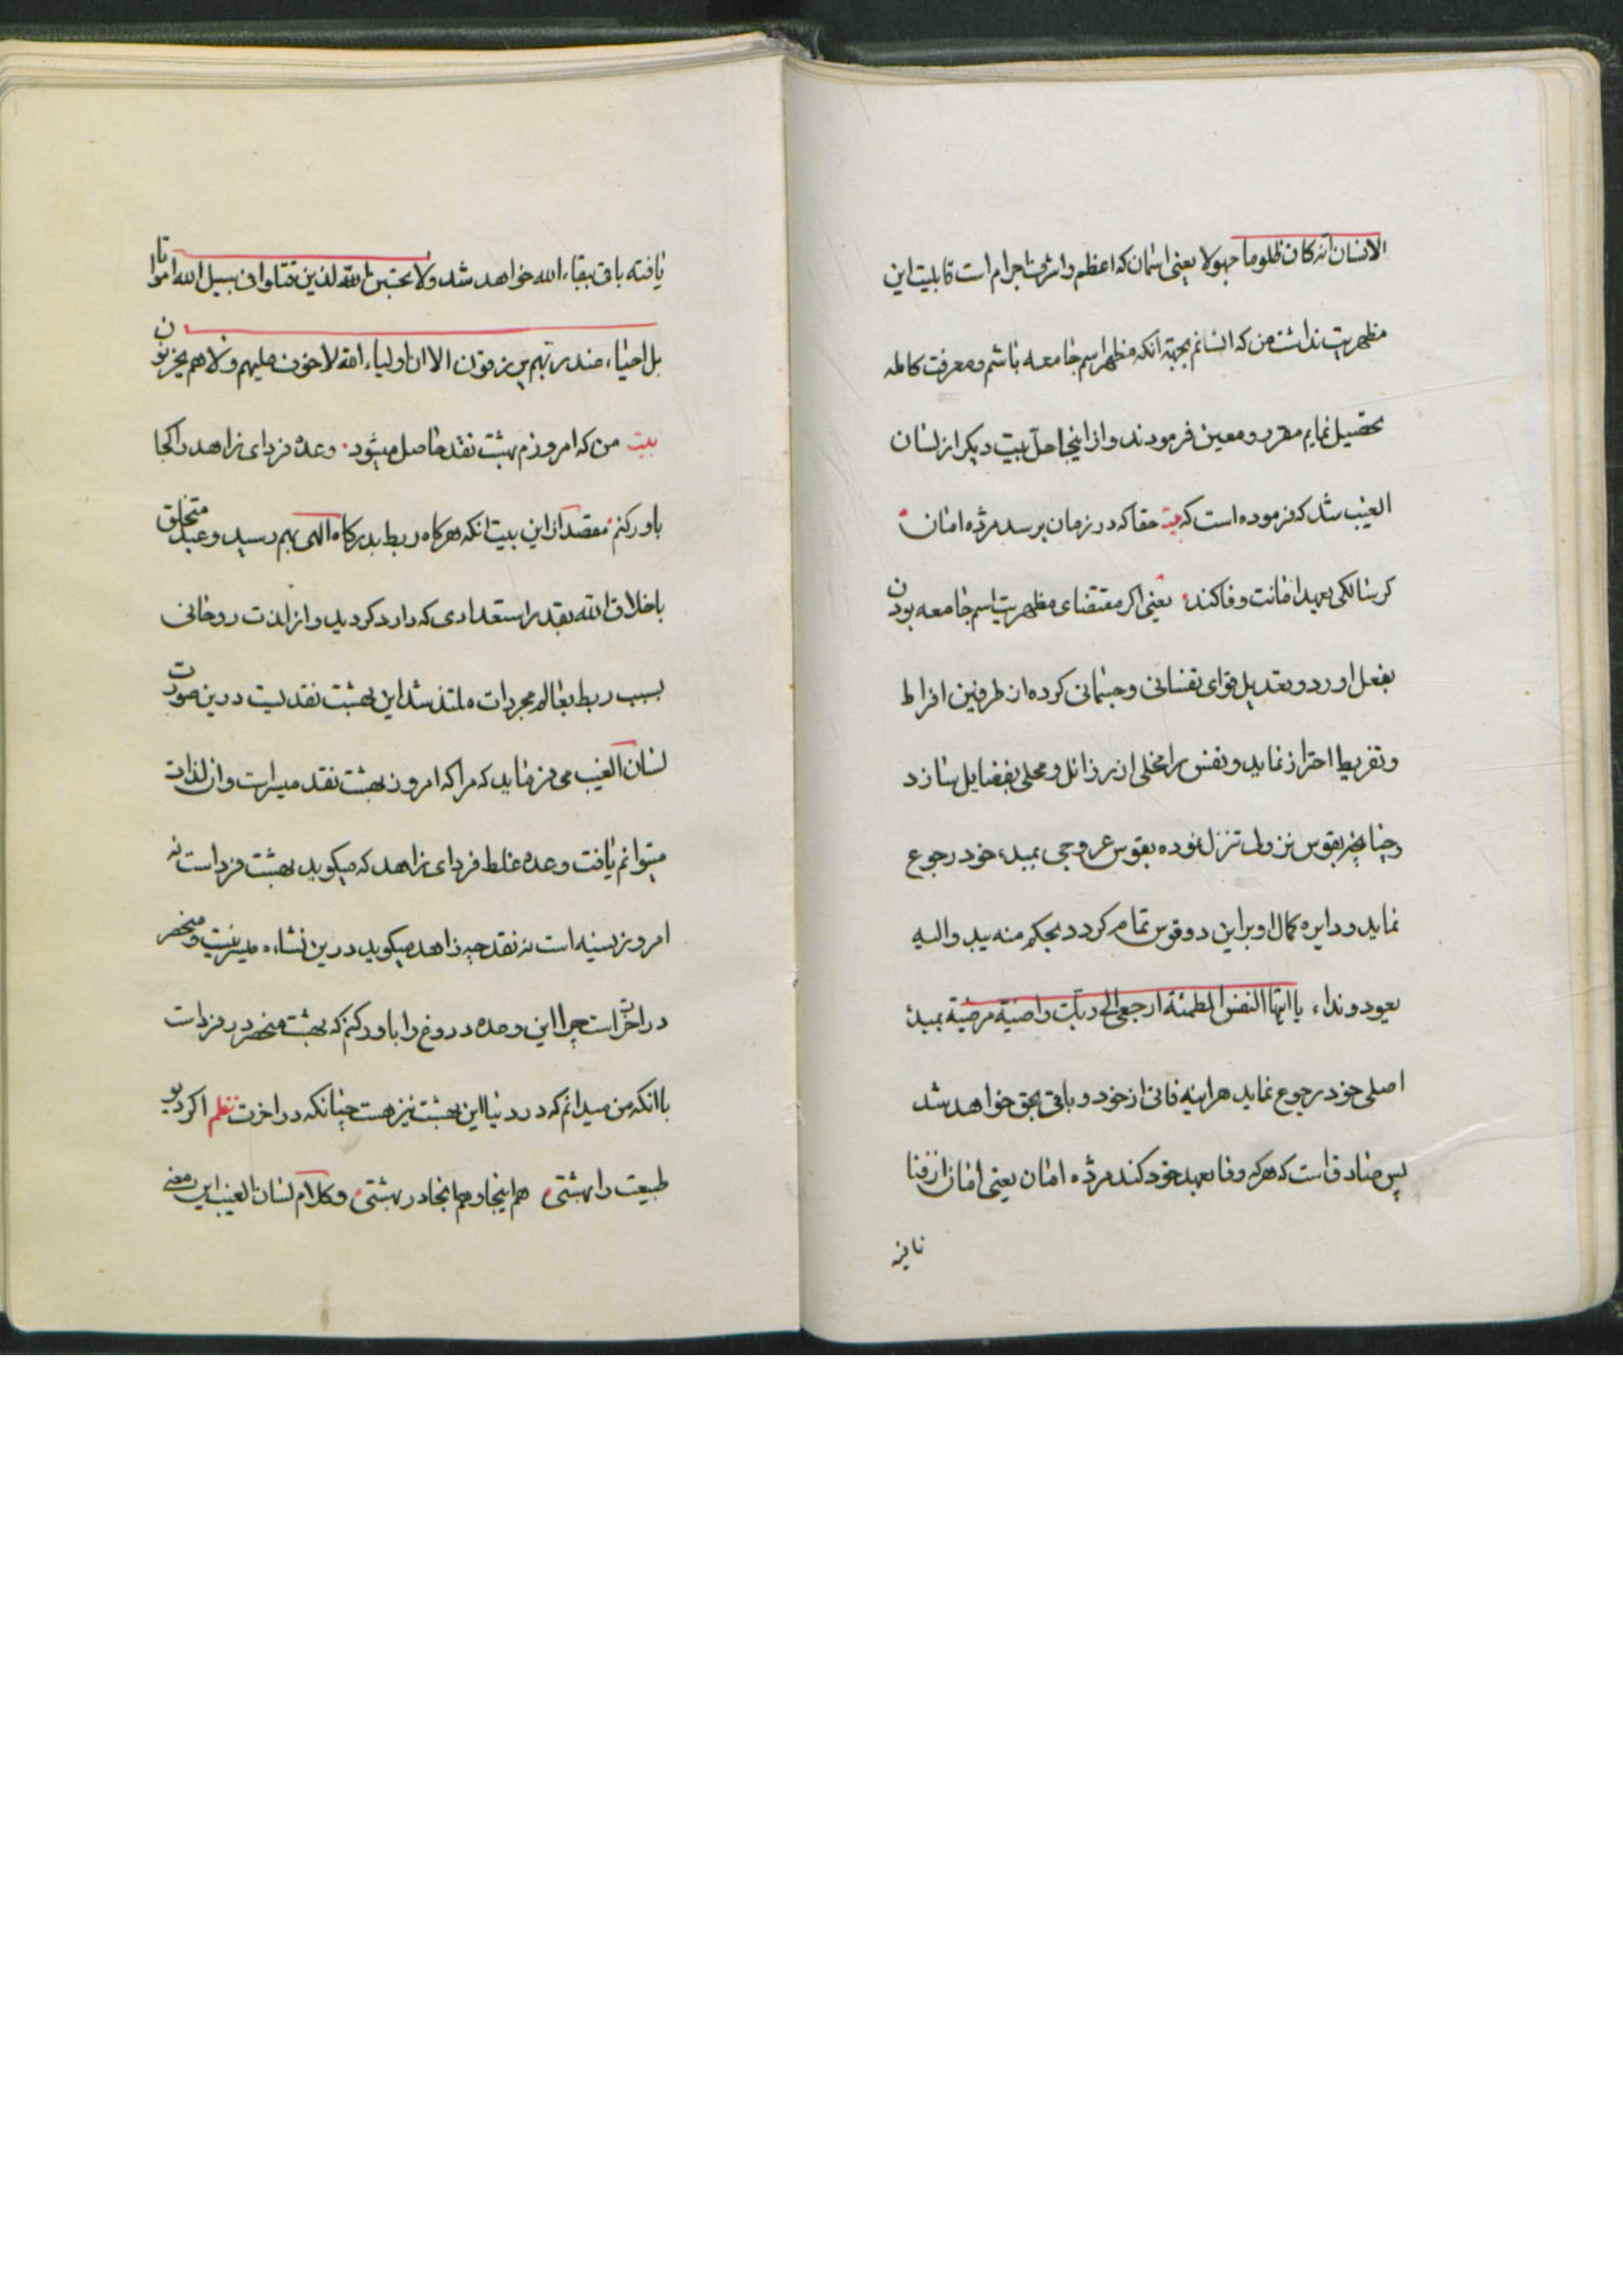 الانسان انه کان ظلوما جهولا یعنی اسمان که اعظم و اشرف اجرام است قابلیت این
مظهریت نداشت من که انسانم بجهة انکه مظهر اسم جامعه باشم و معرفت کامله
تحصیل نمایم مقرر و معین فرمودند و از اینجا حل بیت دیکر از لسان
الغیب شد که فرموده است که بیت حقا که در زمان برسد مژده امان
کر سالکی بعهد امانت وفا کند یعنی اکر مقتضای مظهریت اسم جامعه بودن
بفعل اورد و بتعدیل قوای نفسانی و جسمانی کرده از طرفین افراط
و تفریط احتراز نماید و نفس را مخلی از رذائل و محلی بفضایل سازد
و چنانچه بقوس نزولی تنزل نموده بقوس عروجی بمبدء خود رجوع
نماید و دایره کمال او براین دو قوس تمام کردد بحکم منه بدء والیه
یعود و نداء یا ایتها النفس المطمئنة ارجعی الی ربک راضیة مرضیة بمبدء
اصلی خود رجوع نماید هراینه فانی از خود و باقی بحق خواهد شد
پس صادق است که هر که وفا بعهد خود کند مژده امان یعنی امان از فنا
یافته باقی ببقاء الله خواهد شد ولا تحسبن الله لذین قتلوا فی سبیل الله امواتا
بل احیاء عند ربهم یرزقون الا ان اولیاء الله لا خوف علیهم ولا هم یحزنون
بیت من که امروزم بهشت نقد حاصل میشود وعده فردای زاهد را کجا
باور کنم مقصد از این بیت انکه هرکاه ربط بدرکاه الهی بهم رسید و عبد متخلق
باخلاق الله بقدر استعدادی که دارد کردید و از لذت روحانی
بسبب ربط بعالم مجردات ملتذ شد این بهشت نقدیست درین صورت
لسان الغیب می فرماید که مرا که امروز بهشت نقد میسر است و از لذات
میتوانم یافت وعده غلط فردای زاهد که میکوید بهشت فرداست نه
امروز نسیه است نه نقد چه زاهد میکوید درین نشاءه میسر نیست و منحصر
در اخرت است چرا این وعده دروغ را باور کنم که بهشت منحصر در فرداست
با انکه من میدانم که در دنیا این بهشت نیز هست چنانکه در اخرت نظم اکر دیو
طبیعت را بهشتی هم اینجا و هم انجا در بهشتی و کلام لسان الغیب این معنی